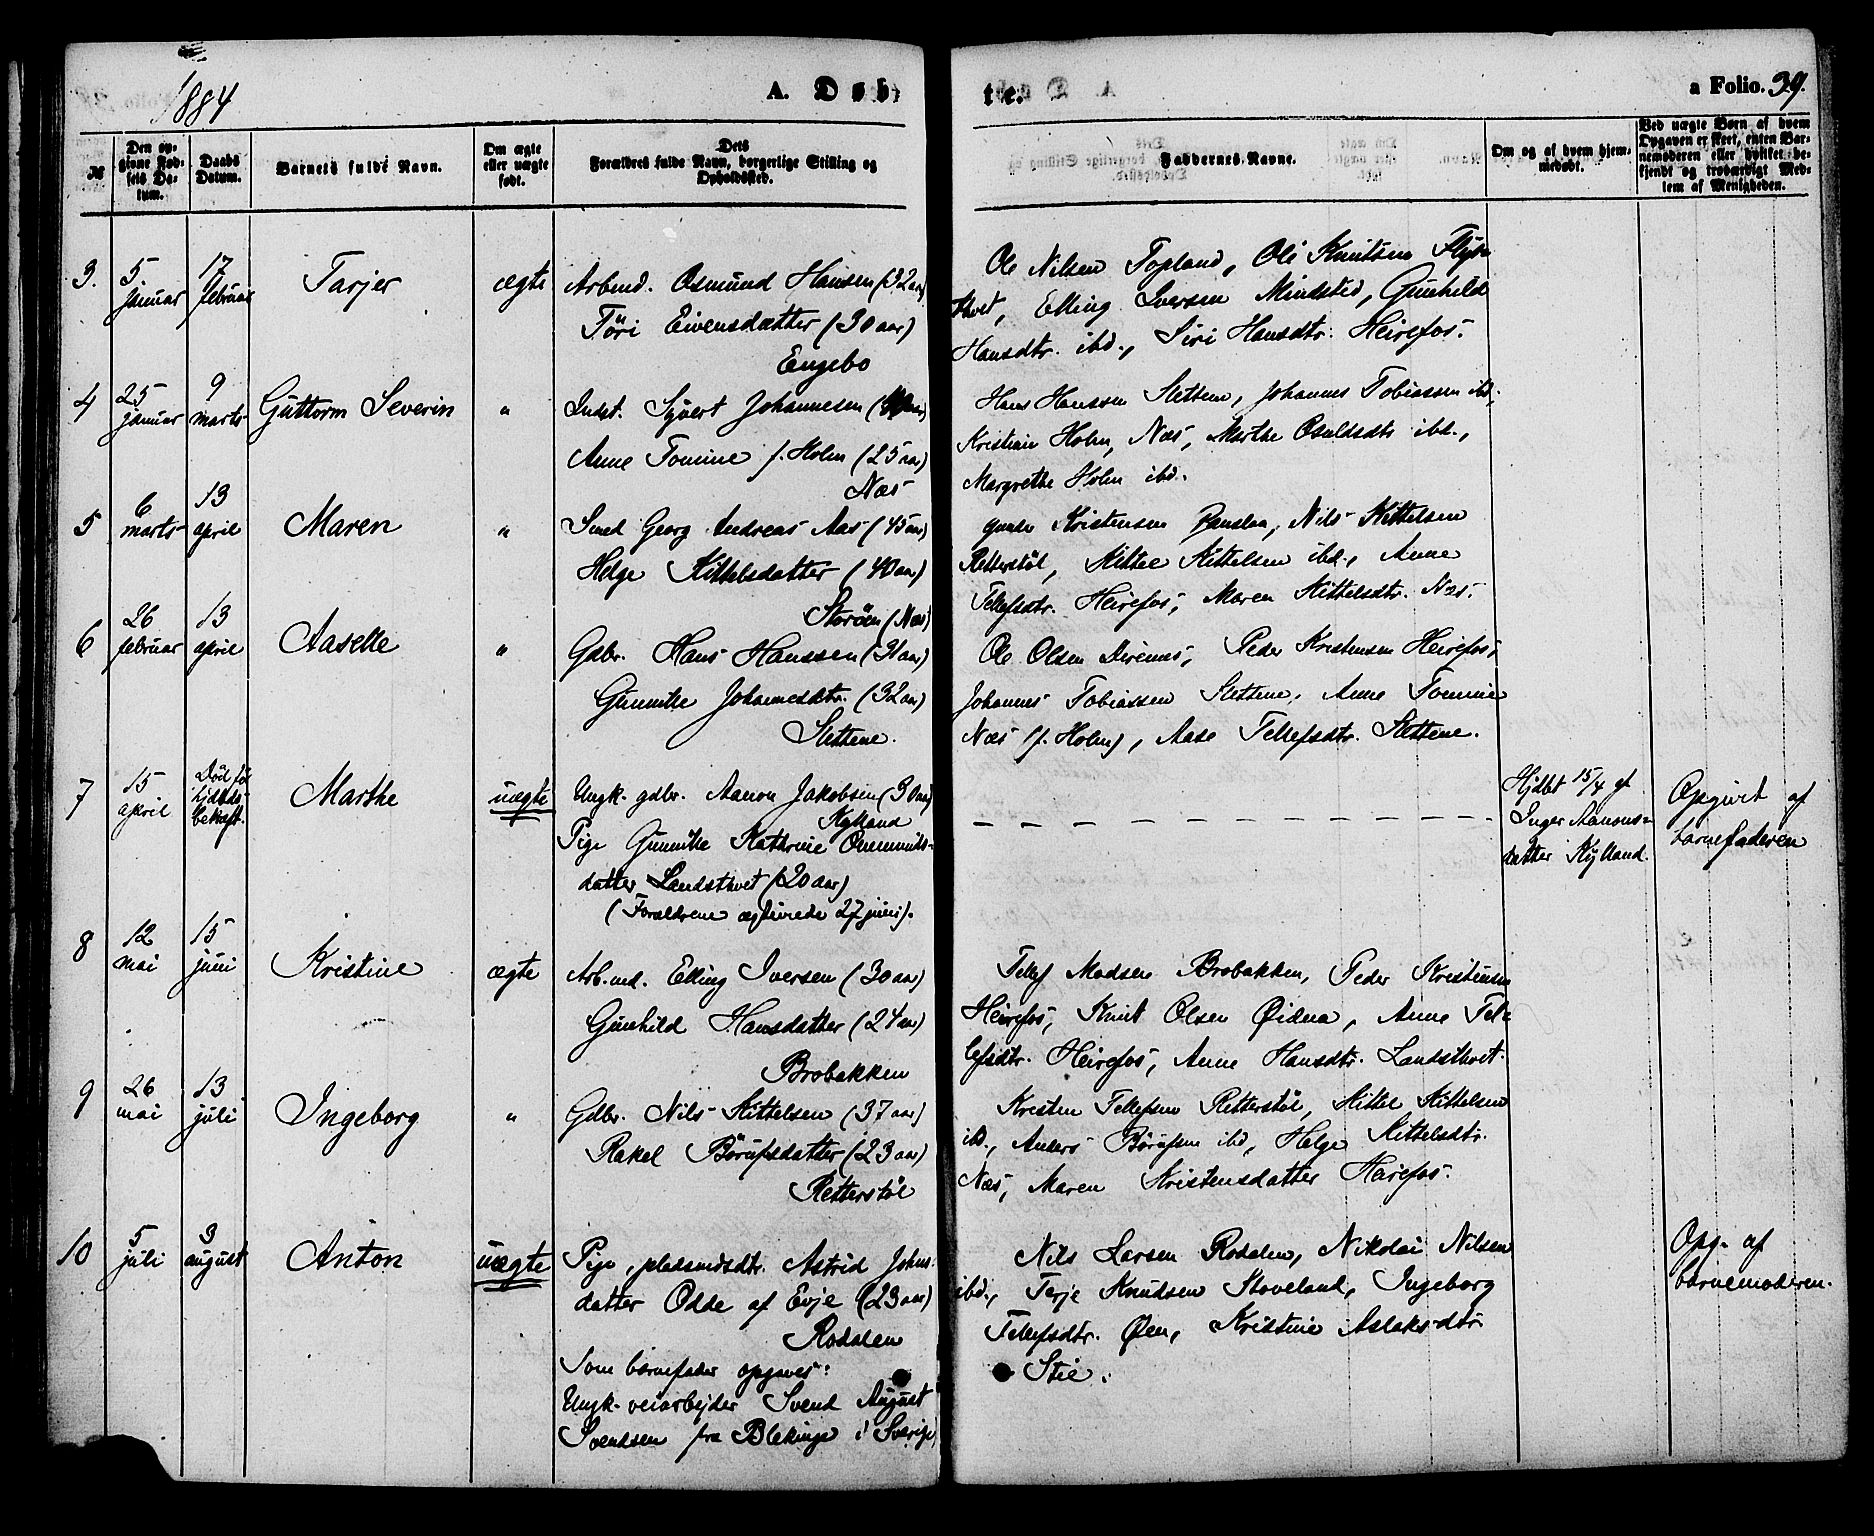 1884
A. Døb-
te.
a Folio. 39.
№
Den op-
givne Fød-
sels Da-
tum.
Daabs
Datum.
Barnets fulde Navn.
Om ægte
eller uægte
født.
Dets
Forældres fulde Navn, borgerlige Stilling og
Opholdssted.
Faddernes Navne.
Om og af hvem hjem-
medøbt.
Ved uægte Børn af hvem
Opgaven er skeet, enten Bar-
nemoderen eller hvilket be-
kjendt og troværdigt Med-
lem af Menigheden.
3.
5
januar
17
februar
Tarjer
ægte
Arbmd. Osmund Hansen (32 aar)
Töri Eivensdatter (30 aar)
Engebo
Ole Nilsen Topland, Ole Knutsen
Elling Iversen Mindsted, Gunhild
Hansdtr. ibd., Siri Hansdtr. Heirefos.
4
25
januar
9
marts
Guttorm Severin
"
Indst. Syvert Johannesen
Anne Tomine f. Holm (25 aar)
Næs
Hans Hanssen Slettene, Johannes Tobiassen ibd.,
Kristian Holm, Næs, Marthe Osuldsdtr ibd.,
Margrethe Holm ibd.
5
6
marts
13
april
Maren
"
Smed Georg Andreas Aas (45 aar)
Helge Kittelsdatter (40 aar)
Storøen (Næs)
Kristensen Nils Kittelsen
Retterstøl, Kittel Kittelsen ibd., Anne
Tellefsdtr. Heirefos, Maren Kittelsdtr. Næs.
6
26
februar
13
april
Aaselle
"
Gdbr. Hans Hanssen (31 aar)
Gunnille Johannesdtr. (32 aar)
Slettene.
Ole Olsen Direnes, Peder Kristensen Heirefos,
Johannes Tobiassen Slettene, Anne Tomine
Næs (f. Holm), Aase Tellefsdtr. Slettene.
7
15
april
Død før
bekræft.
Marthe
uægte
Ungk. gdbr. Aanon Jakobsen (30 aar)
Kylland
Pige Gunnille Kathrine Ommunds-
datter Landsthvet (20 aar)
(Forældrene ægteviede 27 juni).
Hjdbt 15/4 af
Inger Aanons-
datter Kylland.
Opgivet af
barnefaderen
8
12
mai
15
juni
Kristine
ægte
Arb.md. Elling Iversen (30 aar)
Gunhild Hansdatter (24 aar)
Brobakken
Tellef Madsen Brobakken, Peder Kristensen
Heirefos, Knut Olsen Øidna, Anne Tel-
lefsdtr. Heirefos, Anne Hansdtr. Landsthvet.
9
26
mai
13
juli
Ingeborg
"
Gdbr. Nils Kittelsen (37 aar)
Rakel Börufsdatter (23 aar)
Retterstøl
Kristen Tellefsen Retterstøl, Kittel Kittelsen
ibd., Anders Børufsen ibd, Helge Kittelsdtr.
Næs, Maren Kristensdatter Heirefos.
10
5
juli
3
august
Anton
uægte
Pige, pladsmdsdtr. Astrid Johns-
datter Odde af Evje (23 aar)
Rosdalen
Som barnefader opgaves:
Ungk. veiarbejder Svend August
Svendsen fra Blekinge i Sverige
Nils Larsen Rosdalen, Nikolai Nilsen
ibd., Terje Knudsen Stoveland, Ingeborg
Tellefsdtr. Øen, Kristine Aslaksdtr
Stie.
Opg. af
barnemoderen.